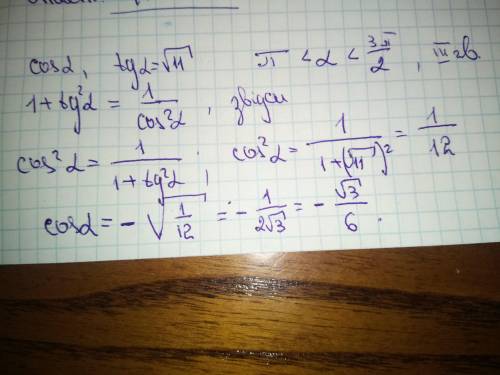 cosα, tgα=√11 π < α < 3π/2, III чв.
1+tg²α = 1/cos²α, звідси
cos²α = 1/(1+tg²α); cos²α = 1/(1+(√11)²) = 1/12
cosα = -√(1/12) = -1/(2√3) = -√3/6.